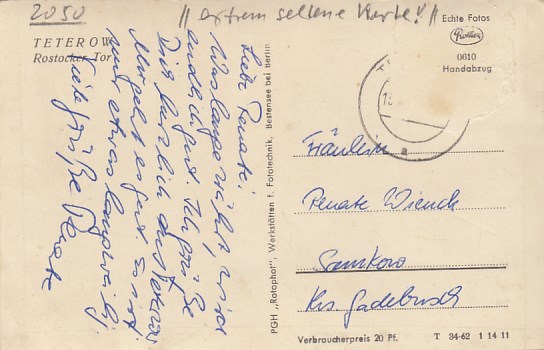 2050
// extrem seltene Karte! //
TETEROW
Rostocker Tor
Echte Fotos
Rotha
0610
Handabzug
Liebe Renate!
Was lange währt, wird
endlich gut. Ich grüße
Dich herzlich aus Teterow.
nur etwas langweilig.
Viele Grüße Renate
PGH „Rotophot", Werkstätten f. Fototechnik, Bestensee bei Berlin
Fräulein
Renate
Krs. Gadebusch
Verbraucherpreis 20 Pf. T 34-62 1 14 11